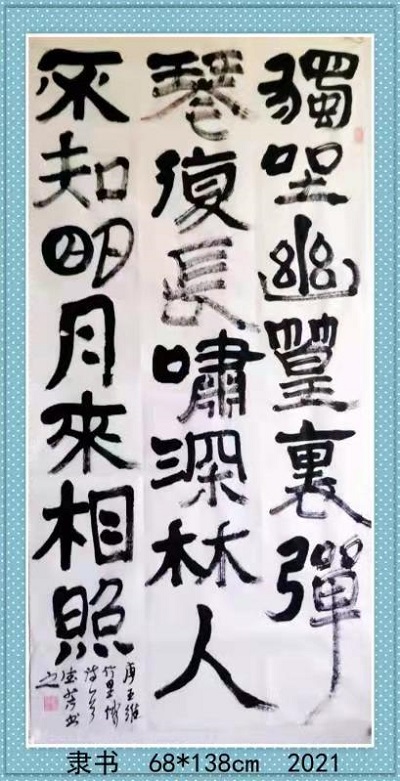 獨坐幽篁裏彈
琴復長嘯深林人
不知明月來相照
唐王維
竹里館
詩一首
隶书 68*138cm 2021